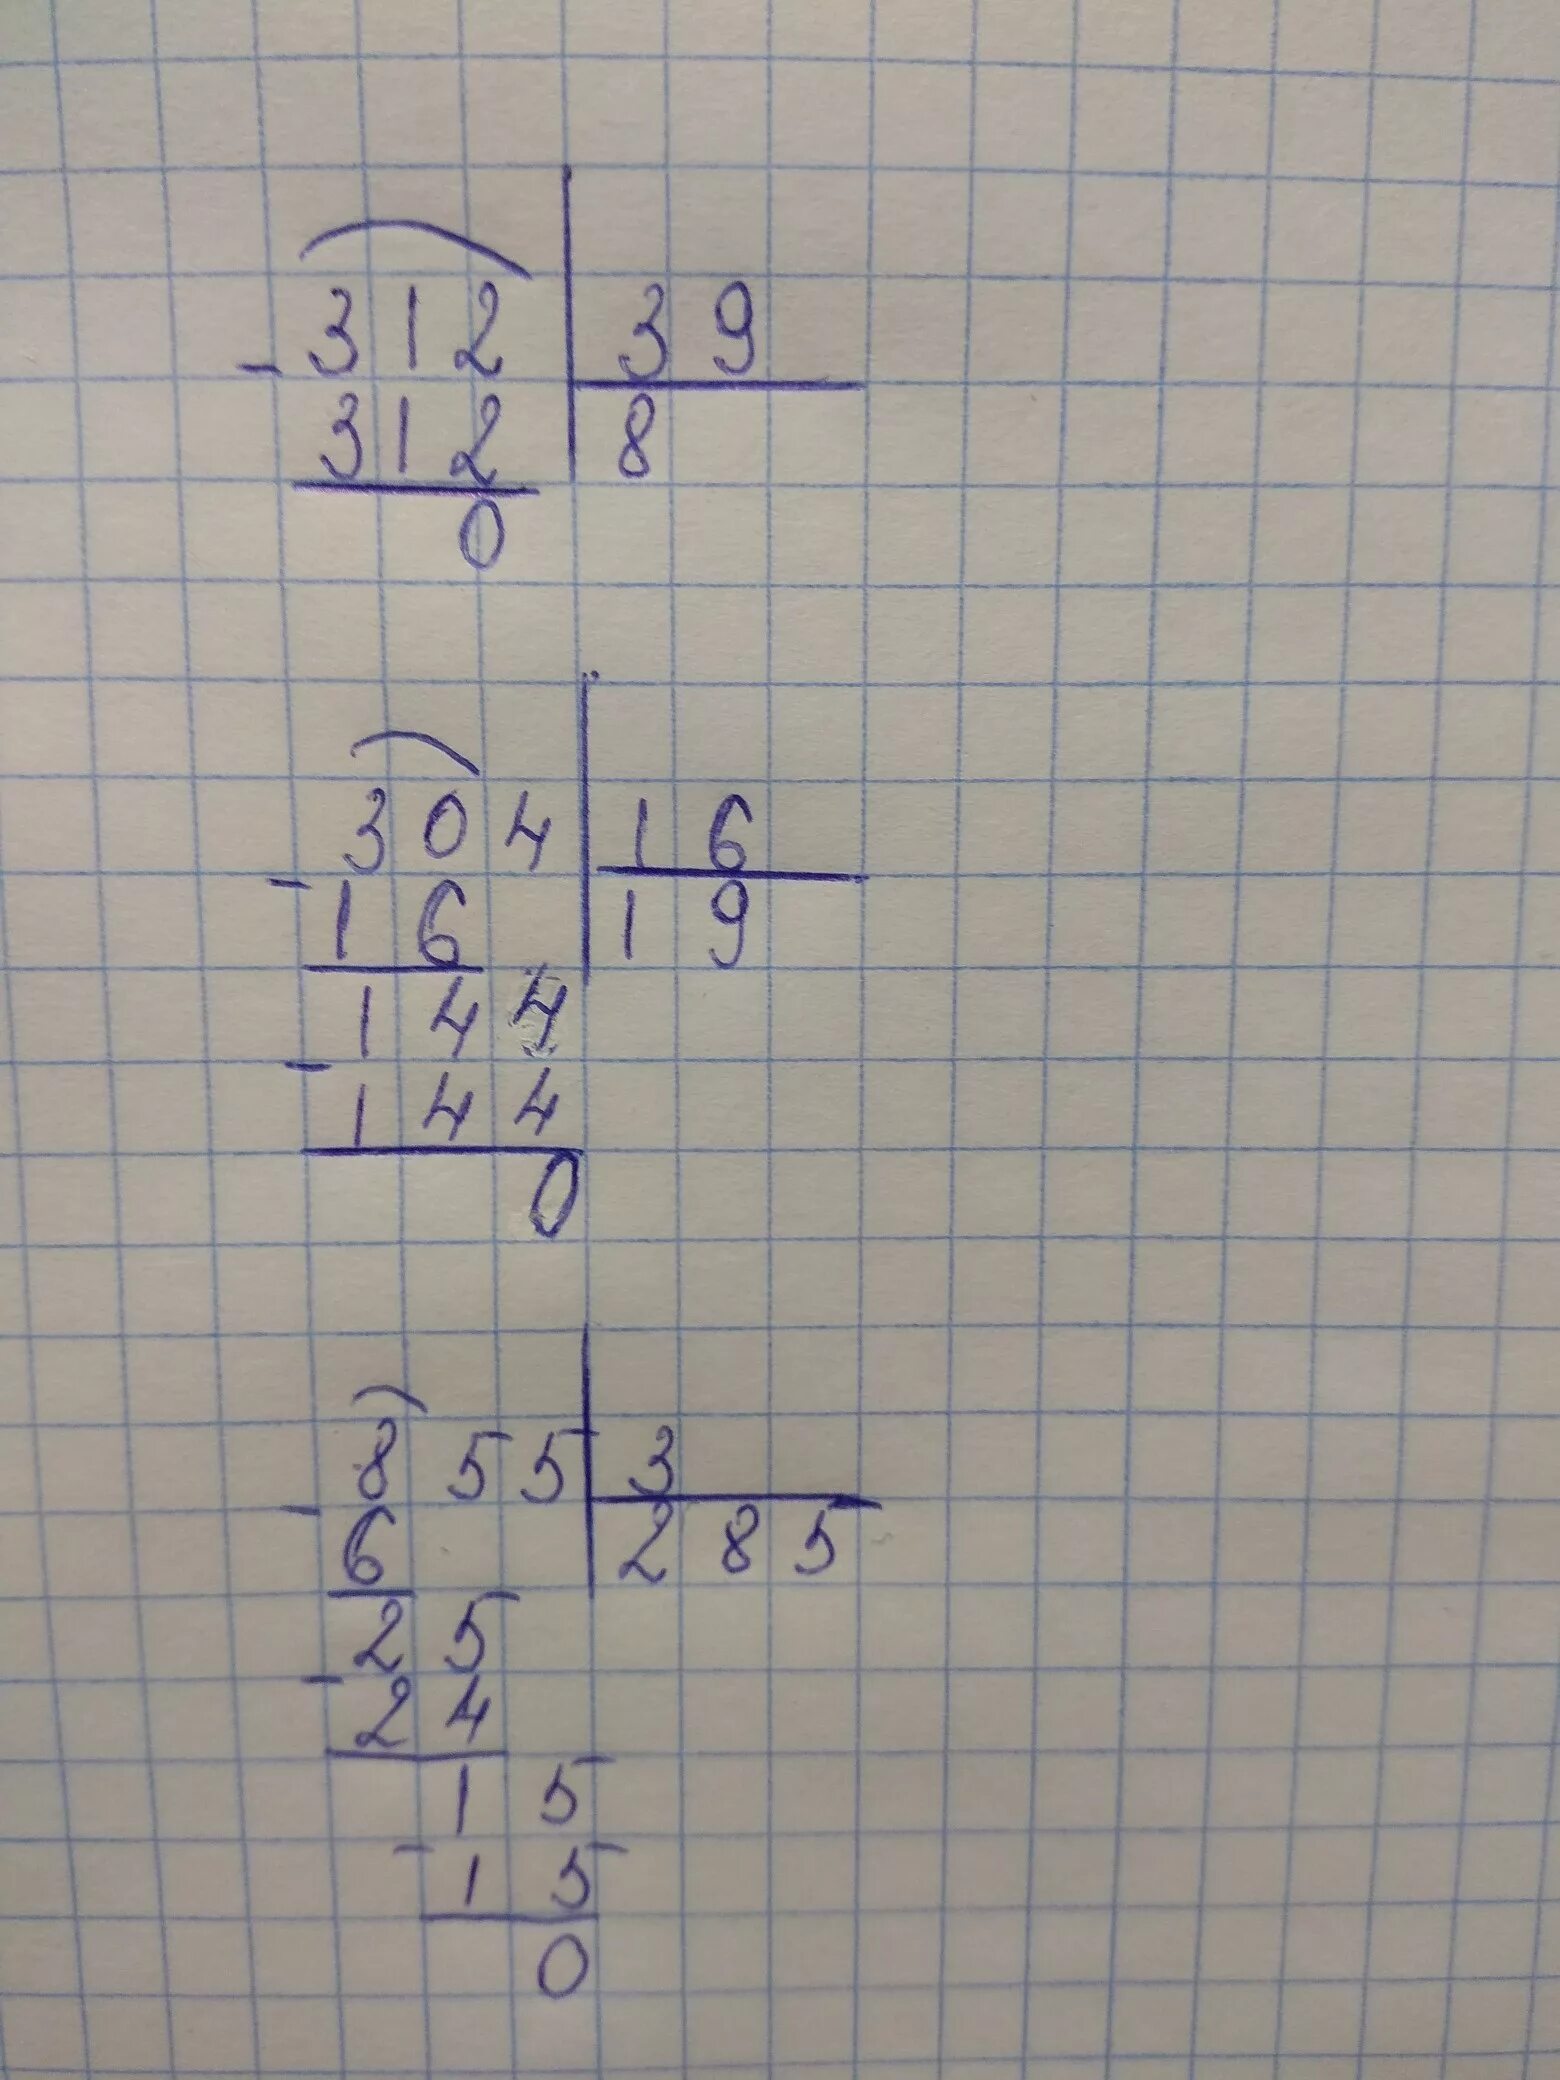 312 39
- 312 8
0
304 16
- 16 19
144
- 144
0
855 3
- 6 285
25
- 24
15
- 15
0